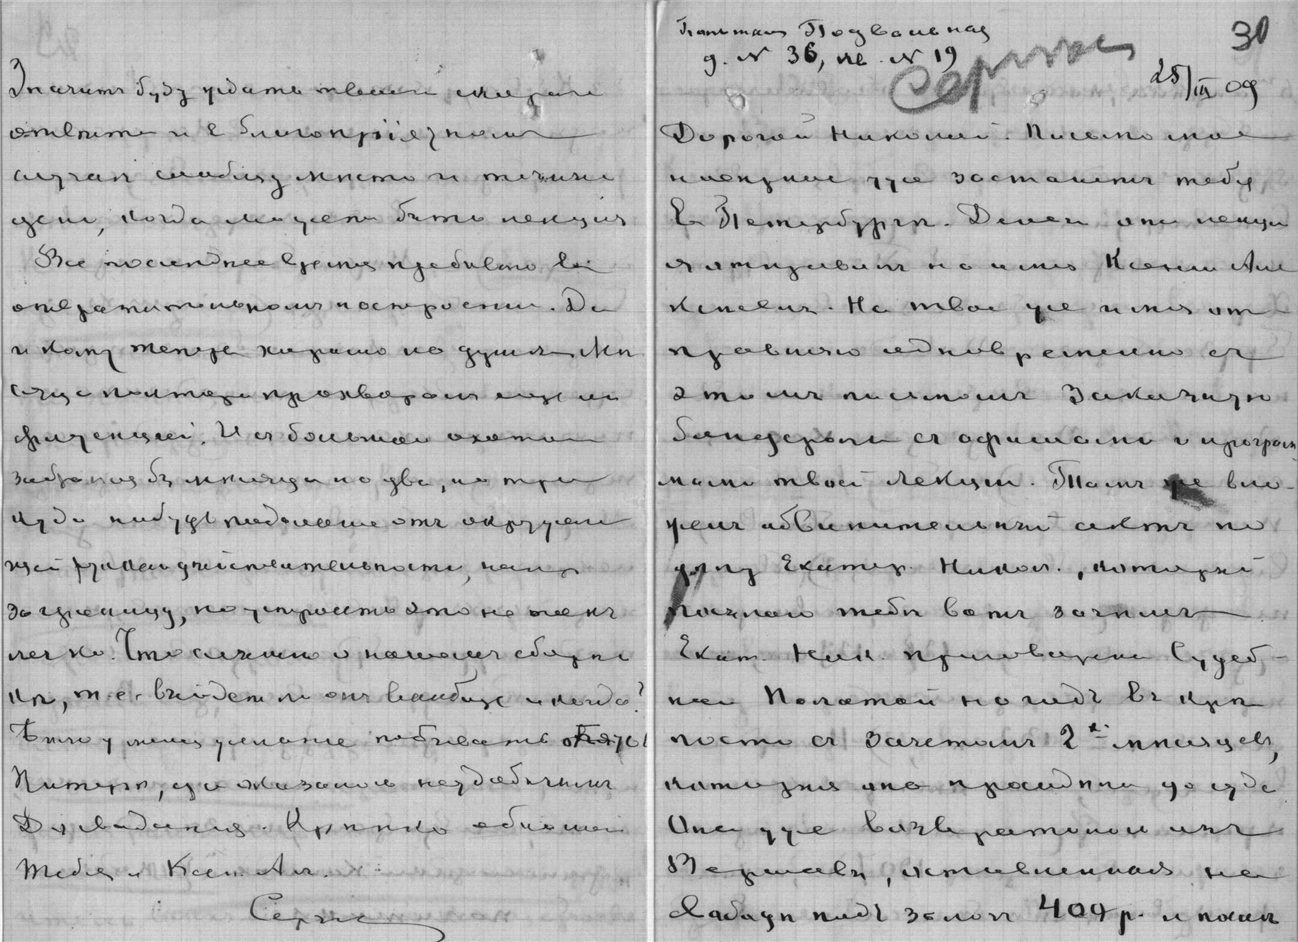 Значитъ буду ждать твоей
отвѣта и въ благопріятном
случаѣ сообщу мѣсто и
день, когда можетъ быть лекція
Все последнее время пребываю въ
отвратительномъ настроеніи. Да
и кому теперь хорошо на душѣ. Мѣ
сяца полтора прохворалъ еще ин
флуенцией. И съ большой охотой
забрался бъ мѣсяца на два, на три
куда нибудь подальше отъ окружаю
щей дѣйствительности,
за границу, но устроить это не такъ
легко. Что слышно о нашемъ сборни
кѣ, т. е. выйдетъ ли онъ вообще и когда?
Было у меня желаніе побывать
Питерѣ, да оказалось неудобнымъ
До свиданія. Крѣпко обнимаю
тебя и Ксен. Ал.
Сергѣй
30
д. № 36, кв. № 19
Сергѣй
25/III 09
Дорогой Николай. Письмо мое
навѣрное уже застанетъ тебя
въ Петербургѣ. Деньги отъ лекціи
я отправилъ на имя Ксеніи Але
ксѣевны. На твое же имя от
правляю одновременно съ
этимъ письмомъ заказную
бандероль съ афишами и програм
мами твоей лекціи. Тамъ же вло
женъ обвинительный актъ по
дѣлу Екатер. Никол., который
посылаю тебѣ вотъ зачѣмъ.
Екат. Ник. приговорена Судеб
ной Палатой на годъ въ крѣ
пость съ зачетомъ 2х мѣсяцевъ,
которые она просидѣла до суда
Она уже возвратилась изъ
Варшавы, оставленная на
свободѣ подъ залогъ 400 р. и